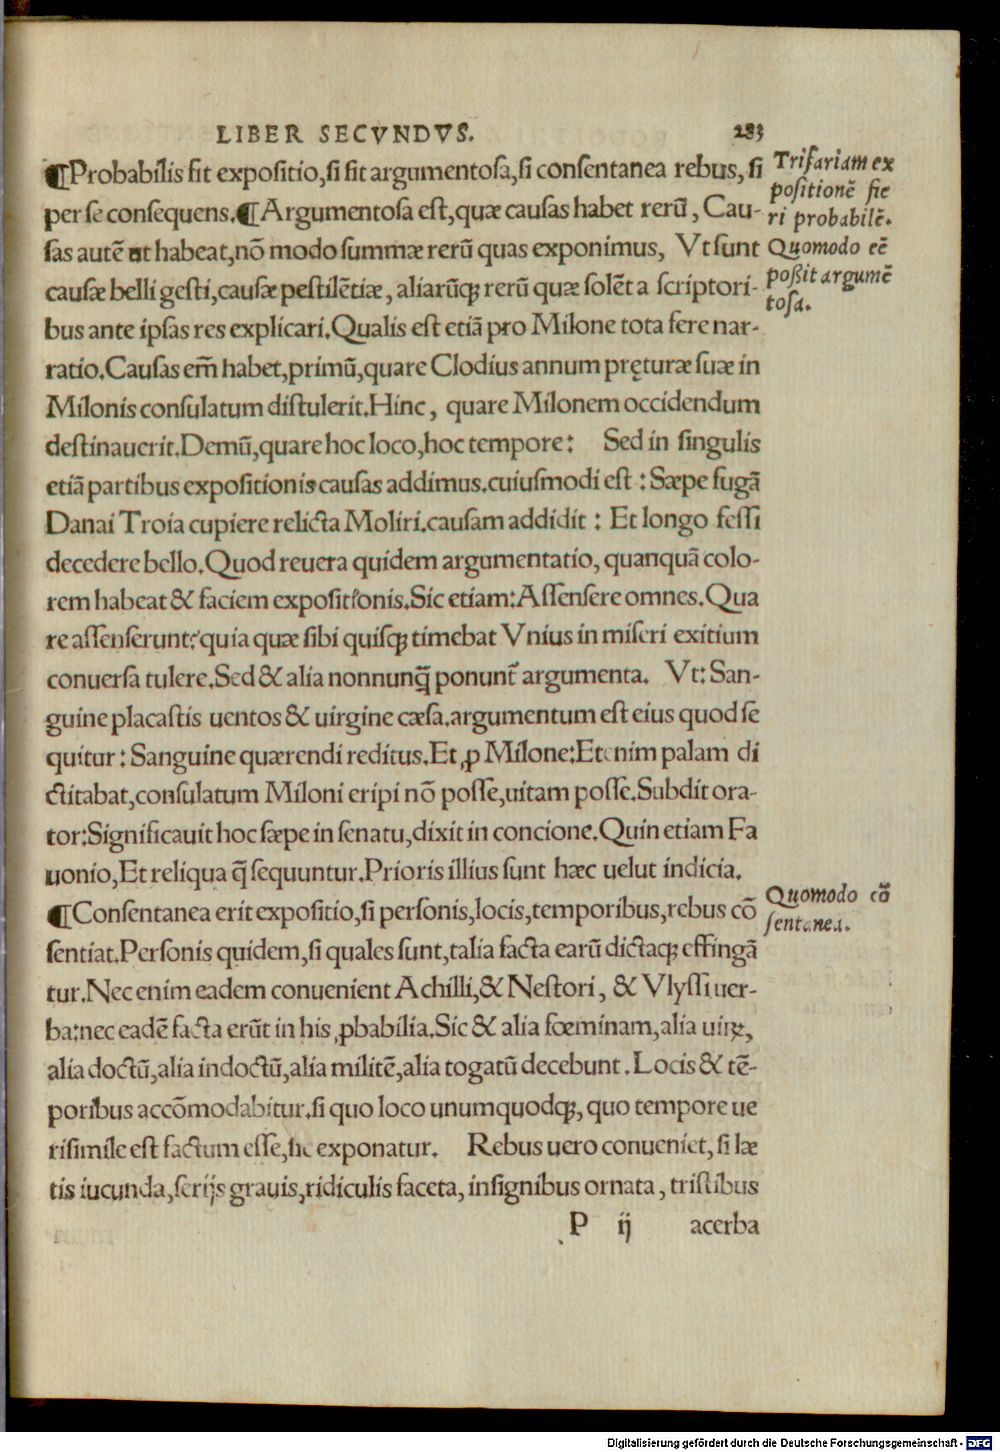 LIBER SECVNDVS. 283
¶Probabilis fit expositio,si sit argumentosa,si consentanea rebus, si
per se consequens.¶Argumentosa est,quæ causas habet rerū, Cau-
sas autē ut habeat,nō modo summæ rerū quas exponimus, Vt sunt
causæ belli gesti,causæ pestilētiæ, aliarūqꝫ rerū quæ solēt a scriptori-
bus ante ipsas res explicari.Qualis est etiā pro Milone tota fere nar-
ratio.Causas em̄ habet,primū,quare Clodius annum pręturæ suæ in
Milonis consulatum distulerit.Hinc, quare Milonem occidendum
destinauerit.Demū,quare hoc loco,hoc tempore: Sed in singulis
etiā partibus expositionis causas addimus.cuiusmodi est : Sæpe fugā
Danai Troia cupiere relicta Moliri.causam addidit : Et longo fessi
decedere bello.Quod reuera quidem argumentatio, quanquā colo-
rem habeat & faciem expositionis.Sic etiam:Assensere omnes.Qua
re assenserunt?quia quæ sibi quisqꝫ timebat Vnius in miseri exitium
conuersa tulere.Sed & alia nonnunq̄ ponunt̄ argumenta. Vt: San-
guine placastis uentos & uirgine cæsa.argumentum est eius quod se
quitur : Sanguine quærendi reditus.Et ꝓ Milone:Etenim palam di
ctitabat,consulatum Miloni eripi nō posse,uitam posse.Subdit ora-
tor:Significauit hoc sæpe in senatu,dixit in concione.Quin etiam Fa
uonio,Et reliqua q̄ sequuntur.Prioris illius sunt hæc uelut indicia.
¶Consentanea erit expositio,si personis,locis,temporibus,rebus cō
sentiat.Personis quidem,si quales sunt,talia facta earū dictaqꝫ effingā
tur.Nec enim eadem conuenient Achilli,& Nestori, & Vlyssi uer-
ba:nec eadē facta erūt in his ꝓbabilia.Sic & alia fœminam,alia uirꝝ,
alia doctū,alia indoctū,alia militē,alia togatū decebunt.Locis & tē-
poribus accōmodabitur.si quo loco unumquodqꝫ, quo tempore ue
risimile est factum esse,sic exponatur. Rebus uero conueniet, si læ
tis iucunda,serijs grauis,ridiculis faceta, insignibus ornata, tristibus
P ij acerba
Trifariam ex
positionē fie
ri probabilē.
Quomodo eē
poßit argumē
tosa.
Quomodo cō
sentanea.
Digitalisierung gefördert durch die Deutsche Forschungsgemeinschaft - DFG